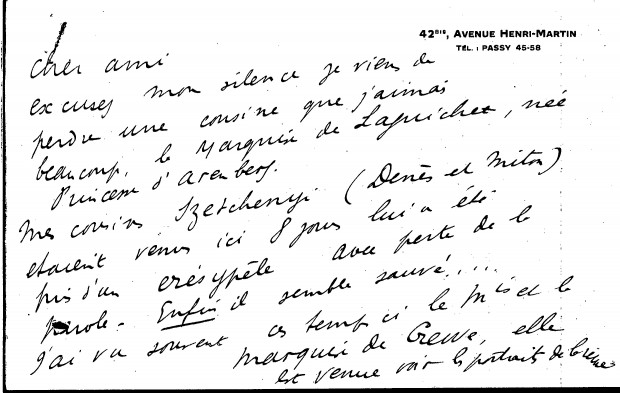 42BIS, AVENUE HENRI-MARTIN
TÉL. : PASSY 45-58
cher ami
excusez mon silence je viens de
perdre une cousine que j'aimais
beaucoup, la Marquise de Laguiche, née
Princesse d'Arenberg.
Mes cousins Szetchenyi (Denès et Miton)
etaient venus ici 8 jours lui a été
pris d'un erésypèle avec perte de la
parole - Enfin il semble sauvé....
J'ai vu souvent ces temps ci le Mis et la
marquise de Crewe, elle
est venue voir les portraits de la reine